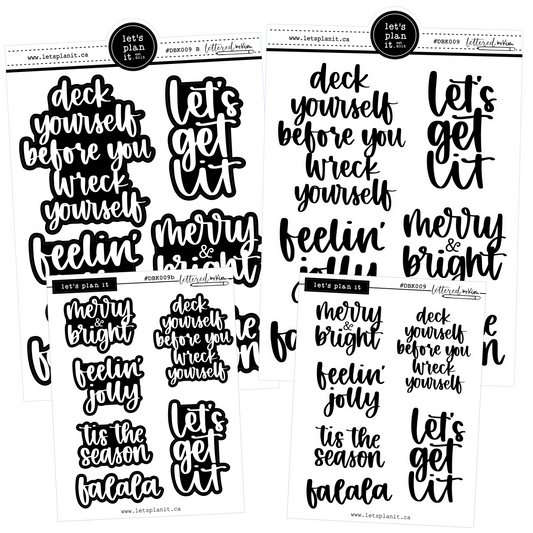 let's
plan
it.
EST.
2015
www.letsplanit.ca
#DBK009 B
lettered.
deck
yourself
before you
wreck
yourself
let's
get
lit
feelin'
merry
&
bright
let's
plan
it.
EST.
2015
www.letsplanit.ca
#DBK009
lettered.
deck
yourself
before you
wreck
yourself
let's
get
lit
feelin'
jolly
merry
&
bright
let's plan it
#DBK009b
lettered.
merry
&
bright
deck
yourself
before you
wreck
yourself
feelin'
jolly
tis the
season
let's
get
lit
falala
www.letsplanit.ca
let's plan it
#DBK009
lettered.
merry
&
bright
deck
yourself
before you
wreck
yourself
feelin'
jolly
tis the
season
let's
get
lit
falala
www.letsplanit.ca